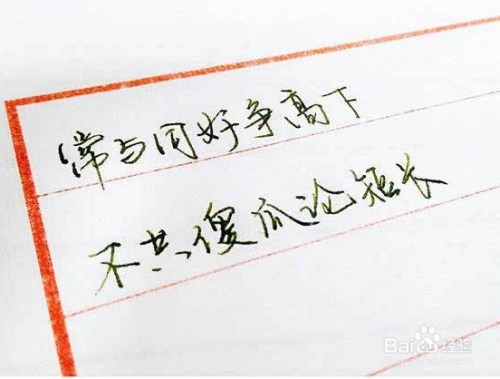 常与同好争高下
不共傻瓜论短长
Baidu经验